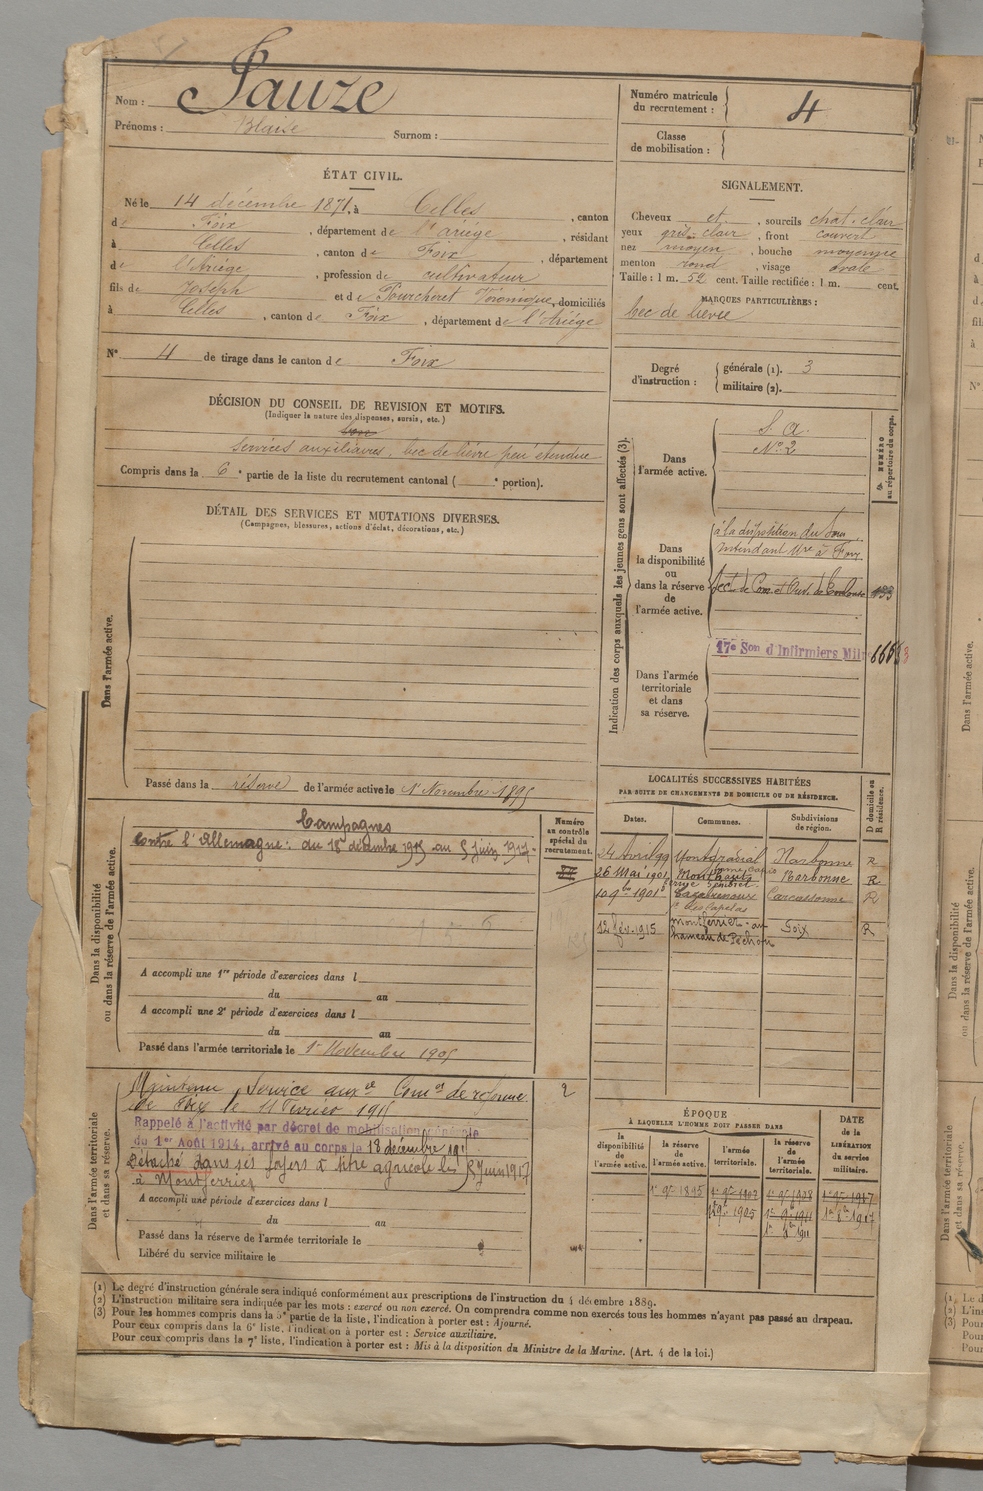 Nom : Sauze
Prénoms : Blaise Surnom :
Numéro matricule du recrutement : 4
Classe de mobilisation :
ÉTAT CIVIL.
Né le 14 décembre 1871, à Celles, canton
de Foix, département de l'Ariége, résidant
à Celles, canton de Foix, département
de l'Ariége, profession de cultivateur
fils de Joseph et de Fourcheret Véronique, domiciliés
à Celles, canton de Foix, département de l'Ariége
N° 4 de tirage dans le canton de Foix
SIGNALEMENT.
Cheveux et, sourcils chat. clair
yeux gris clair, front couvert
nez moyen, bouche moyenne
menton rond, visage ovale
Taille : 1 m. 52 cent. Taille rectifiée : 1 m. cent.
MARQUES PARTICULIÈRES :
bec de lièvre
Degré d'instruction : générale (1). 3
militaire (2).
DÉCISION DU CONSEIL DE REVISION ET MOTIFS.
(Indiquer la nature des dispenses, sursis, etc.)
Services auxiliaires, bec de lièvre peu étendue
Compris dans la 6e partie de la liste du recrutement cantonal ( e portion).
DÉTAIL DES SERVICES ET MUTATIONS DIVERSES.
(Campagnes, blessures, actions d'éclat, décorations, etc.)
Dans l'armée active.
Passé dans la réserve de l'armée active le 1r Novembre 1895
Indication des corps auxquels les jeunes gens sont affectés (3).
NUMÉRO au répertoire du corps.
Dans l'armée active.
S. A.
No 2
Dans la disponibilité ou dans la réserve de l'armée active.
à la disposition du Sous
intendant Mre à Foix
Sect. de Com. et Ouv. de Toulouse
Dans l'armée territoriale et dans sa réserve.
17e Son d'Infirmiers Mil
LOCALITÉS SUCCESSIVES HABITÉES
PAR SUITE DE CHANGEMENTS DE DOMICILE OU DE RÉSIDENCE.
Dates. Communes. Subdivisions de région. D domicile ou R résidence.
24 Avril 99 Montgradail Narbonne R
26 Mai 1901 Narbonne R
10 9bre 1901 Cazalrenoux Carcassonne R
12 fév. 1915 Montferrier au hameau de Péchou Foix R
Dans la disponibilité ou dans la réserve de l'armée active.
Numéro au contrôle spécial du recrutement.
Campagnes
Contre l'Allemagne : du 18 décembre 1915 au 5 juin 1917.
A accompli une 1re période d'exercices dans l
du au
A accompli une 2e période d'exercices dans l
du au
Passé dans l'armée territoriale le 1r Novembre 1905
Dans l'armée territoriale et dans sa réserve.
Maintenu Service auxre Comon de réforme 2
de Foix le 11 Février 1915
Rappelé à l'activité par décret de mobilisation générale
du 1er Août 1914, arrivé au corps le 18 décembre 191
Détaché dans ses foyers à titre agricole le 5 Juin 1917
à Montferrier
A accompli une période d'exercices dans l
du au
Passé dans la réserve de l'armée territoriale le
Libéré du service militaire le
ÉPOQUE
À LAQUELLE L'HOMME DOIT PASSER DANS
la disponibilité de l'armée active. la réserve de l'armée active. l'armée territoriale. la réserve de l'armée territoriale. DATE de la LIBÉRATION du service militaire.
(1) Le degré d'instruction générale sera indiqué conformément aux prescriptions de l'instruction du 4 décembre 1889.
(2) L'instruction militaire sera indiquée par les mots : exercé ou non exercé. On comprendra comme non exercés tous les hommes n'ayant pas passé au drapeau.
(3) Pour les hommes compris dans la 5e partie de la liste, l'indication à porter est : Ajourné.
Pour ceux compris dans la 6e liste, l'indication à porter est : Service auxiliaire.
Pour ceux compris dans la 7e liste, l'indication à porter est : Mis à la disposition du Ministre de la Marine. (Art. 4 de la loi.)